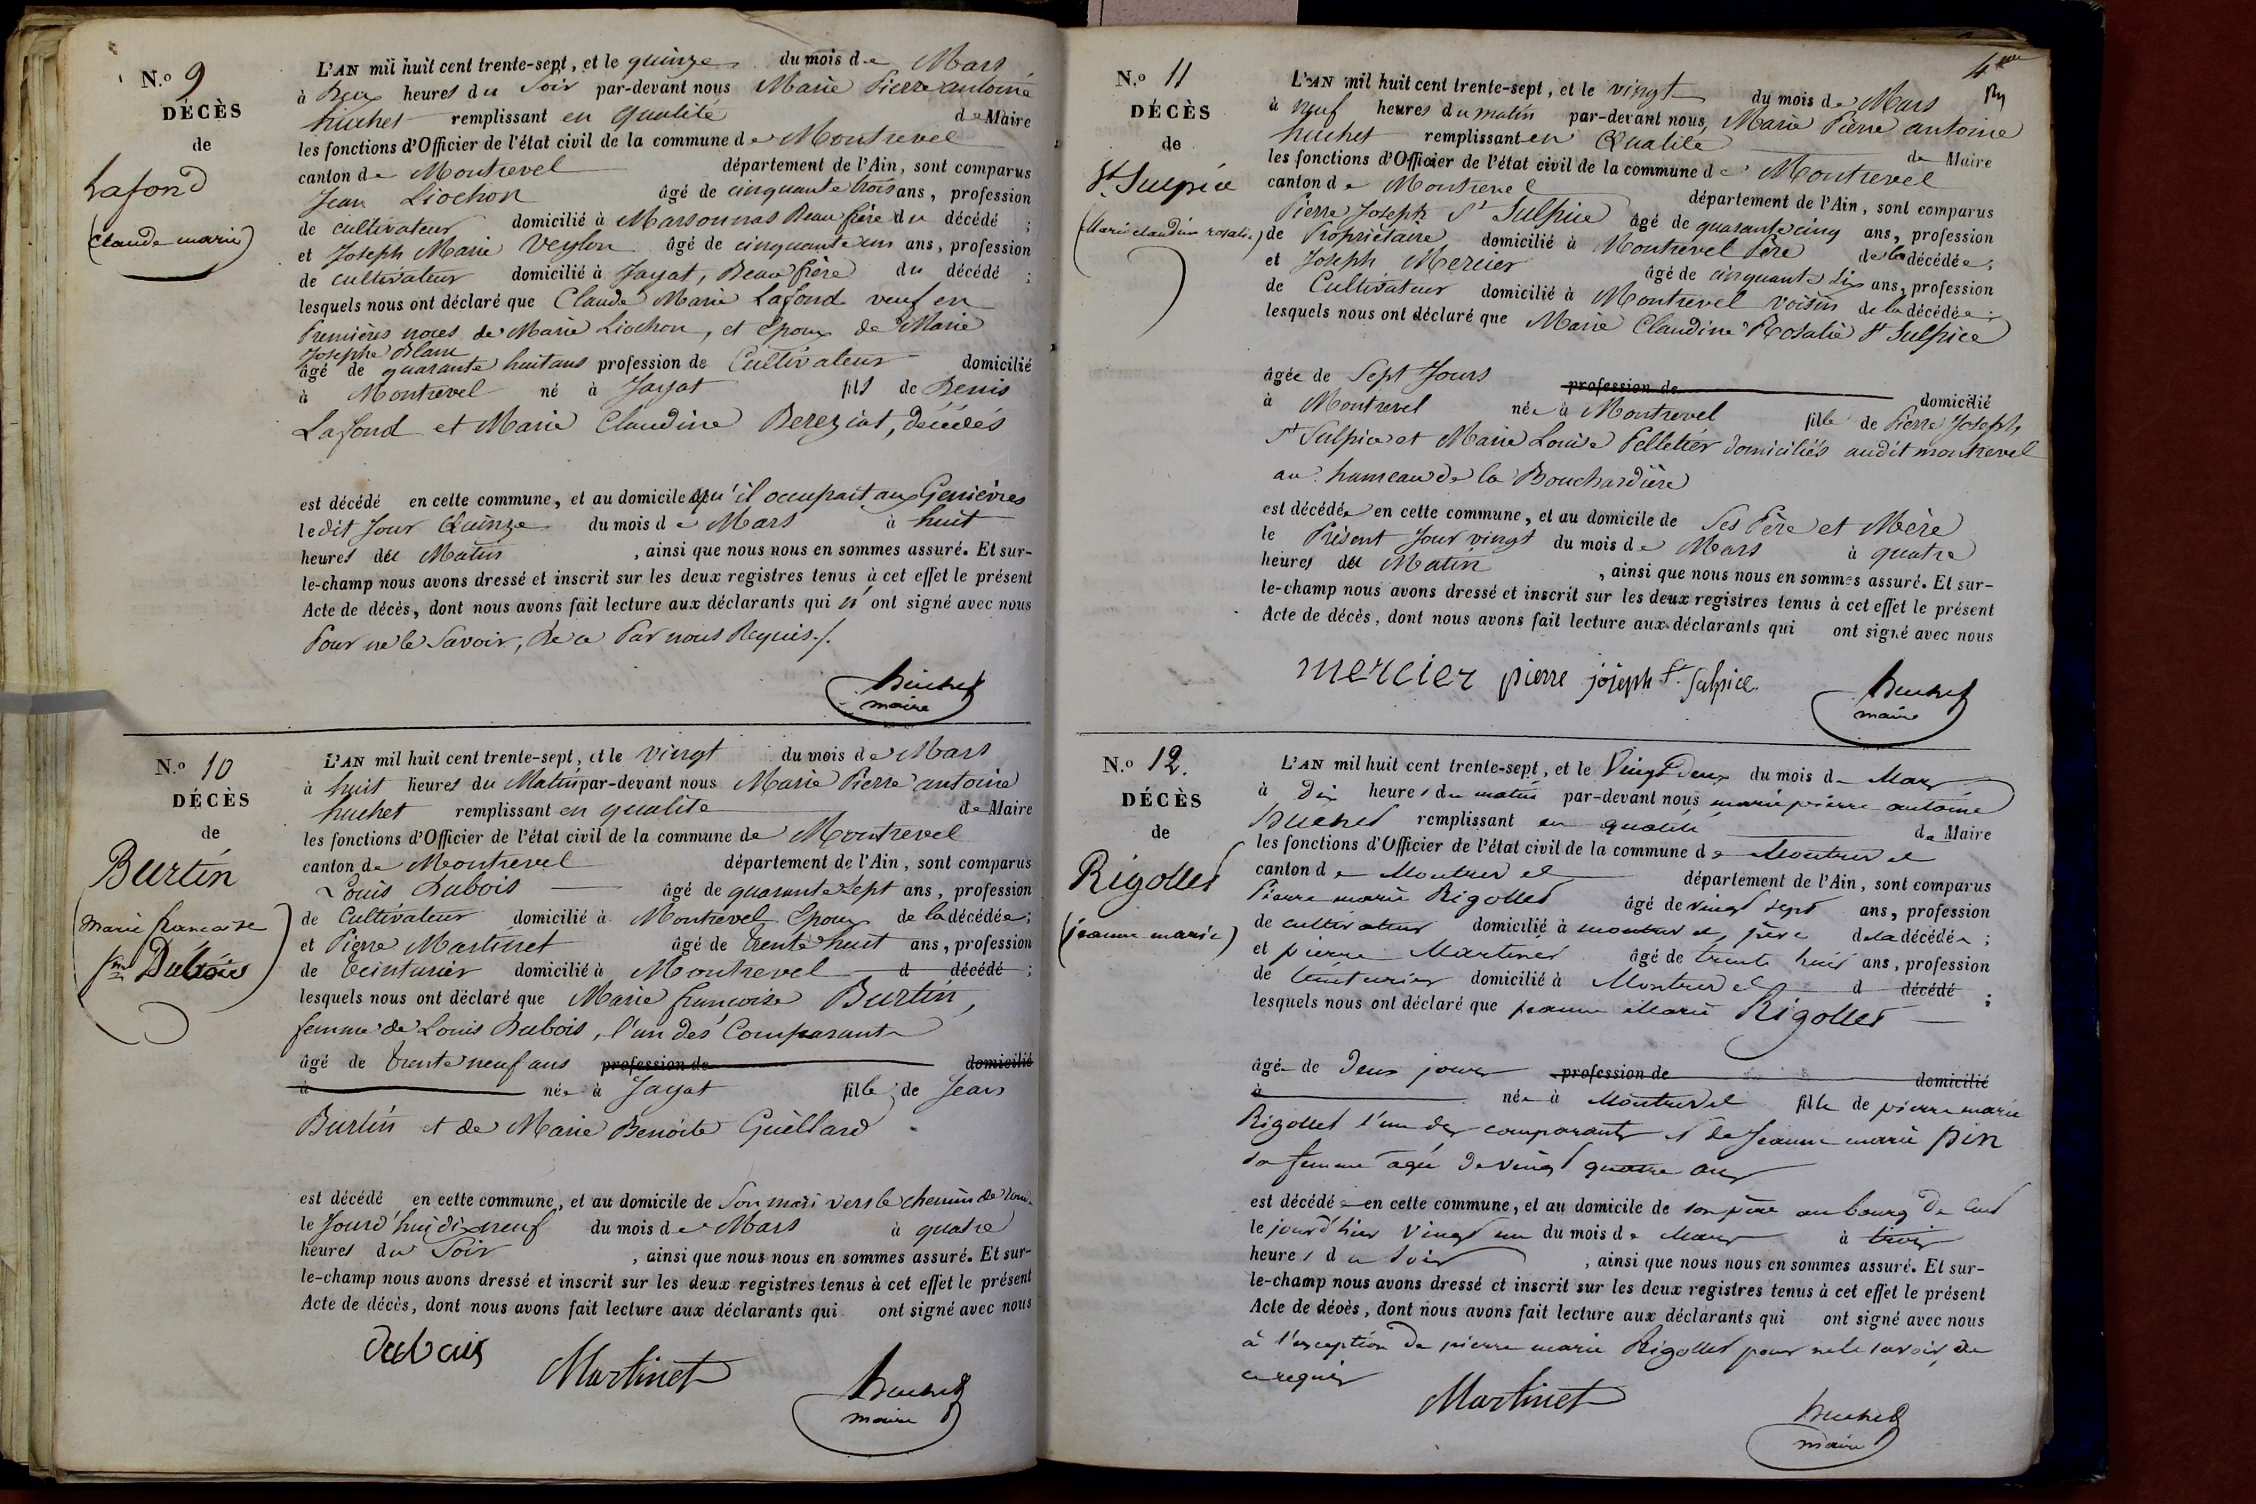 N.o 9
DÉCÈS
de
Lafond
(Claude marie)
L'AN mil huit cent trente-sept, et le quinze du mois de Mars
à Deux heures du Soir par-devant nous Marie Pierre antoine
huchet remplissant en qualité de Maire
les fonctions d'Officier de l'état civil de la commune de Montrevel
canton de Montrevel département de l'Ain, sont comparus
Jean Liochon âgé de cinquante trois ans, profession
de cultivateur domicilié à Marsonnas Beau frère du décédé ;
et Joseph Marie Veylon âgé de cinquante un ans, profession
de cultivateur domicilié à Jayat, Beau frère du décédé ;
lesquels nous ont déclaré que Claude Marie Lafond veuf en
Premières noces de Marie Liochon, et Epoux de Marie
Josephe Blanc
âgé de quarante huit ans profession de Cultivateur domicilié
à Montrevel né à Jayat fils de Denis
Lafond et Marie Claudine Bereziat, décédés
est décédé en cette commune, et au domicile qu'il occupait aux Genièvres
le dit Jour Quinze du mois de Mars à huit
heures du Matin , ainsi que nous nous en sommes assuré. Et sur-
le-champ nous avons dressé et inscrit sur les deux registres tenus à cet effet le présent
Acte de décès, dont nous avons fait lecture aux déclarants qui n'ont signé avec nous
Pour ne le Savoir, De ce Par nous Requis ./.
huchet
maire
N.o 10
DÉCÈS
de
Burtin
(marie francoise
fme Dubois)
L'AN mil huit cent trente-sept, et le vingt du mois de Mars
à huit heures du Matin par-devant nous Marie Pierre antoine
huchet remplissant en qualité de Maire
les fonctions d'Officier de l'état civil de la commune de Montrevel
canton de Montrevel département de l'Ain, sont comparus
Louis Dubois âgé de quarante Sept ans, profession
de Cultivateur domicilié à Montrevel Epoux de la décédée ;
et Pierre Martinet âgé de trente huit ans, profession
de teinturier domicilié à Montrevel d décédé ;
lesquels nous ont déclaré que Marie françoise Burtin,
femme de Louis Dubois, l'un des Comparants
âgé de trente neuf ans profession de domicilié
à née à Jayat fille de Jean
Burtin et de Marie Benoite Guillard
est décédé en cette commune, et au domicile de Son mari vers le chemin de
le Jourd'hui dix neuf du mois de Mars à quatre
heures du Soir , ainsi que nous nous en sommes assuré. Et sur-
le-champ nous avons dressé et inscrit sur les deux registres tenus à cet effet le présent
Acte de décès, dont nous avons fait lecture aux déclarants qui ont signé avec nous
dubois
Martinet
huchet
maire
N.o 11
DÉCÈS
de
St Sulpice
(Marie claudine rosalie)
L'AN mil huit cent trente-sept, et le vingt du mois de Mars
à neuf heures du matin par-devant nous, Marie Pierre antoine
huchet remplissant en Qualité de Maire
les fonctions d'Officier de l'état civil de la commune de Montrevel
canton de Montrevel département de l'Ain, sont comparus
Pierre Joseph St Sulpice âgé de quarante cinq ans, profession
de Propriétaire domicilié à Montrevel Père de la décédée ;
et Joseph Mercier âgé de cinquante Six ans, profession
de Cultivateur domicilié à Montrevel voisin de la décédée ;
lesquels nous ont déclaré que Marie Claudine Rosalie St Sulpice
âgée de Sept Jours profession de domicilié
à Montrevel née à Montrevel fille de Pierre Joseph
St Sulpice et Marie Louise Pelletier domiciliés audit montrevel
au hameau de la Bouchardière
est décédée en cette commune, et au domicile de Ses Père et Mère
le Présent Jour vingt du mois de Mars à quatre
heures du Matin , ainsi que nous nous en sommes assuré. Et sur-
le-champ nous avons dressé et inscrit sur les deux registres tenus à cet effet le présent
Acte de décès, dont nous avons fait lecture aux déclarants qui ont signé avec nous
mercier pierre joseph St Sulpice
huchet
maire
N.o 12.
DÉCÈS
de
Rigollet
(jeanne marie)
L'AN mil huit cent trente-sept, et le Vingt deux du mois de Mars
à Dix heures du matin par-devant nous marie pierre antoine
huchet remplissant en qualité de Maire
les fonctions d'Officier de l'état civil de la commune de Montrevel
canton de Montrevel département de l'Ain, sont comparus
Pierre marie Rigollet âgé de vingt sept ans, profession
de cultivateur domicilié à montrevel, père de la décédée ;
et pierre Martinet âgé de trente huit ans, profession
de teinturier domicilié à Montrevel d décédé ;
lesquels nous ont déclaré que jeanne Marie Rigollet
âgée de Deux jours profession de domicilié
à née à Montrevel fille de pierre marie
Rigollet l'un des comparants et de Jeanne marie pin
sa femme agée de vingt quatre ans
est décédée en cette commune, et au domicile de son père au bourg De
le jourd'hier Vingt un du mois de Mars à trois
heures du Soir , ainsi que nous nous en sommes assuré. Et sur-
le-champ nous avons dressé et inscrit sur les deux registres tenus à cet effet le présent
Acte de décès, dont nous avons fait lecture aux déclarants qui ont signé avec nous
à l'exception De pierre marie Rigollet pour ne le savoir, de
ce requis
Martinet
huchet
maire